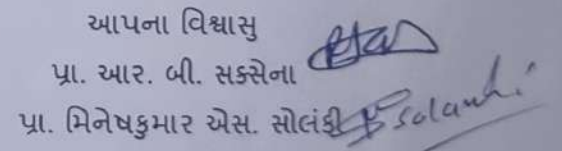 આપના વિશ્વાસુ
પ્રા. આર. બી. સક્સેના
પ્રા. મિનેષકુમાર એસ. સોલંકી solanki